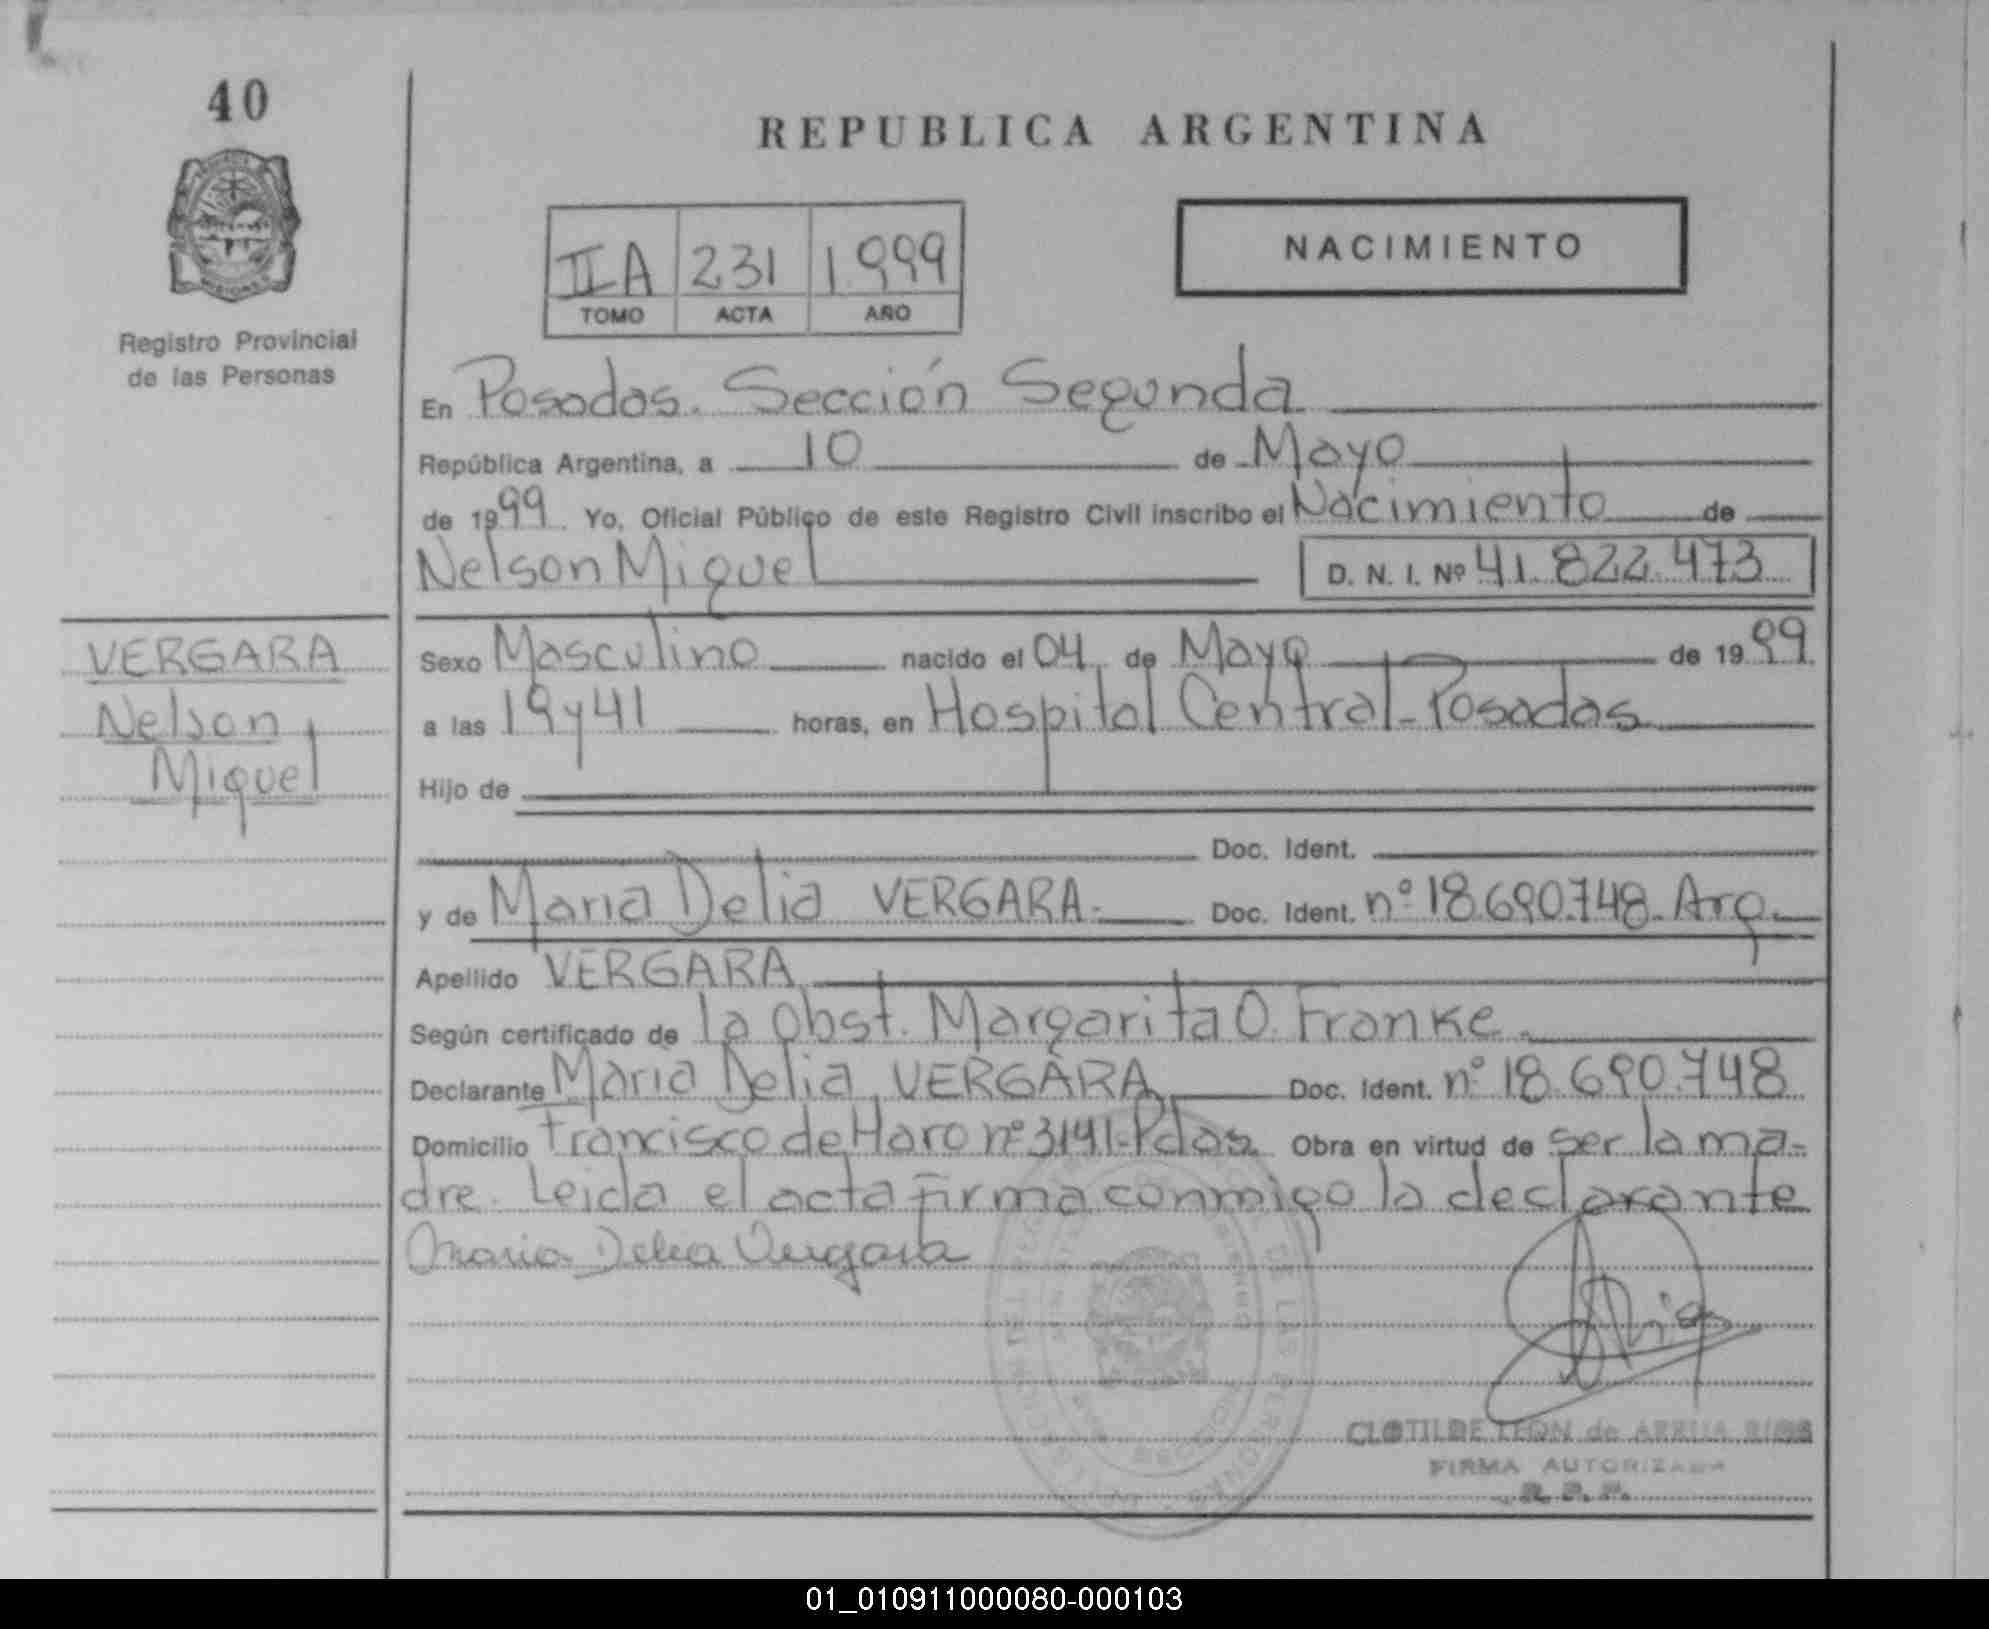 40
REPUBLICA ARGENTINA
IIA 231 1.999
TOMO ACTA AÑO
NACIMIENTO
MISIONES
Registro Provincial
de las Personas
En Posadas. Sección Segunda
República Argentina, a 10 de Mayo
de 1999 Yo, Oficial Público de este Registro Civil inscribo el Nacimiento de
Nelson Miguel D. N. I. Nº 41.822.473
VERGARA
Nelson
Miguel
Sexo Masculino nacido el 04 de Mayo de 1999
a las 19 y 41 horas, en Hospital Central-Posadas
Hijo de
Doc. Ident.
y de Maria Delia VERGARA- Doc. Ident. nº 18.690.748- Arg.
Apellido VERGARA
Según certificado de la Obst. Margarita O. Franke.
Declarante Maria Delia VERGARA Doc. Ident. nº 18.690.748
Domicilio Francisco de Haro nº 3141-Pdas. Obra en virtud de ser la ma-
dre. Leida el acta firma conmigo la declarante
Maria Delia Vergara
CLOTILDE LEON de ARRUA RIOS
FIRMA AUTORIZADA
R. P. P.
01_010911000080-000103